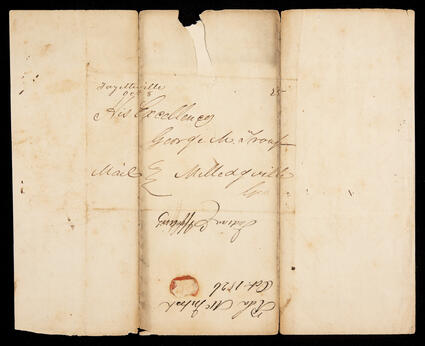 Fayetteville
Oct 8
25
His Excellency
George M. Troup
Mail Milledgeville
Geo
Indian Affairs
McIntosh
Oct. 1826